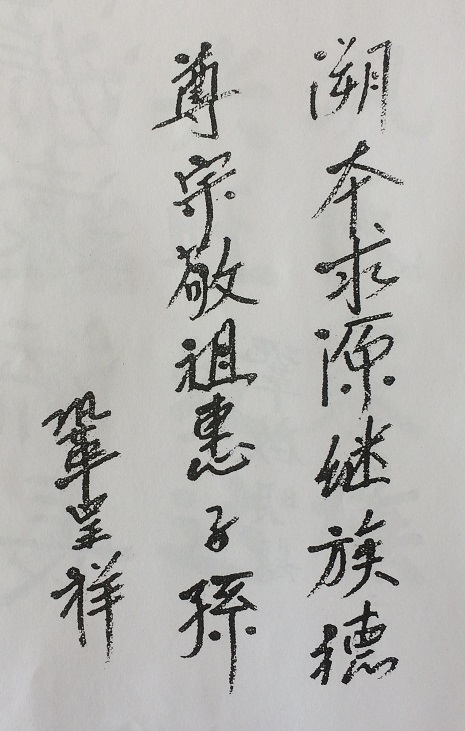 溯本求源继族德
尊宗敬祖惠子孫
鞏呈祥